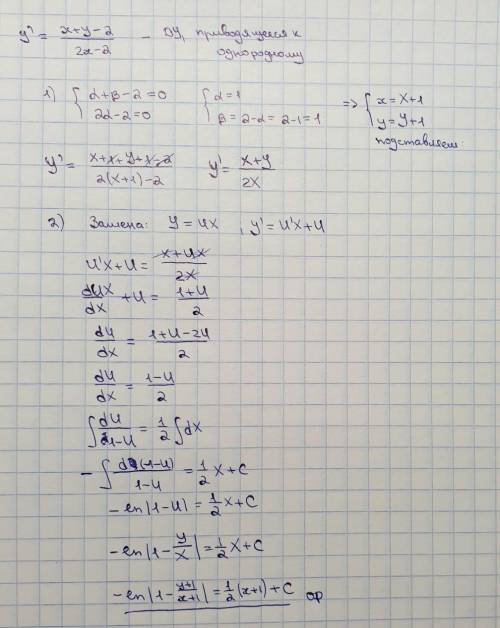 y' = (x+y-2)/(2x-2) – ДУ, приводящееся к однородному
1) { α+β-2=0 { α=1 => { x=X+1
2α-2=0 β=2-α=2-1=1 y=Y+1
подставляем:
Y' = (X+1+Y+1-2)/(2(X+1)-2) Y' = (X+Y)/(2X)
2) Замена: Y=UX , y'=U'X+U
U'X+U = (X+UX)/(2X)
dUX/dX + U = (1+U)/2
dU/dX = (1+U-2U)/2
dU/dX = (1-U)/2
∫ dU/(1-U) = 1/2 ∫dX
-∫ d(1-U)/(1-U) = 1/2 X+C
-ln|1-U| = 1/2 X+C
-ln|1-Y/X| = 1/2 X+C
-ln|1-(y+1)/(x+1)| = 1/2 (x+1)+C ор